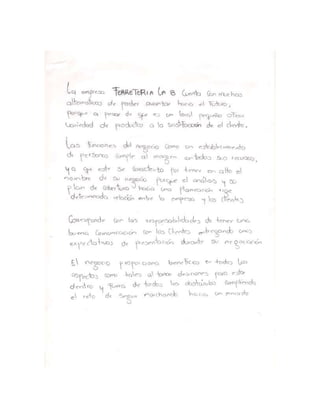 La empresa FERRETERIA LA 13 Cuenta con muchas
alternativas de poder avanzar hacia el futuro,
porque a pesar de que es un local pequeño ofrece
variedad de productos a la satisfacción de el cliente.
Las funciones del negocio como un establecimiento
de personas cumplir al margen con todos sus recursos,
ya que este se caracteriza por tener en alto el
nombre de su negocio porque el analisis y su
plan de cobertura hacia una planeación rige
determinada relación entre la empresa y los clientes
Corresponde con las responsabilidades de tener una
buena comunicación con los clientes entregando unas
expectativas de presentación durante su negociación
El negocio proporciona beneficios en todos los
aspectos como tales al tomar decisiones para estar
dentro y fuera de todos los obstáculos cumpliendo
el reto de seguir marchando hacia un mercado